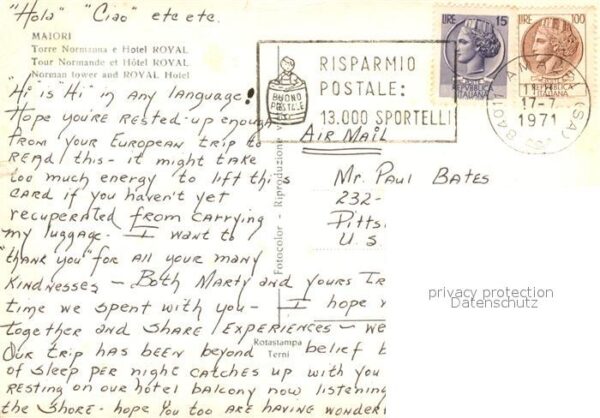 "Hola" "Ciao" etc etc.
MAIORI
Torre Normanna e Hotel ROYAL
Tour Normande et Hôtel ROYAL
Norman tower and ROYAL Hotel
"Hi is "Hi" in any language!
Hope you're rested-up enough
from your European trip to
read this - it might take
too much energy to lift this
card if you haven't yet
recuperated from carrying
my luggage. I want to
"thank you" for all your many
kindnesses - Both Marty and yours tr
time we spent with you - I hope
together and share experiences - we
Our trip has been beyond belief b
of sleep per night catches up with you
resting on our hotel balcony now listening
the shore - hope you too are having wonder
BUONO
POSTALE
RISPARMIO
POSTALE:
13.000 SPORTELLI
LIRE 15
REPVBBLICA
ITALIANA
LIRE 100
REPVBBLICA
ITALIANA
17-7
1971
(SA)
AIR MAIL
Mr. Paul Bates
232-
Pitts
U.S
Fotocolor - Riproduzione v
Rotastampa
Terni
privacy protection
Datenschutz